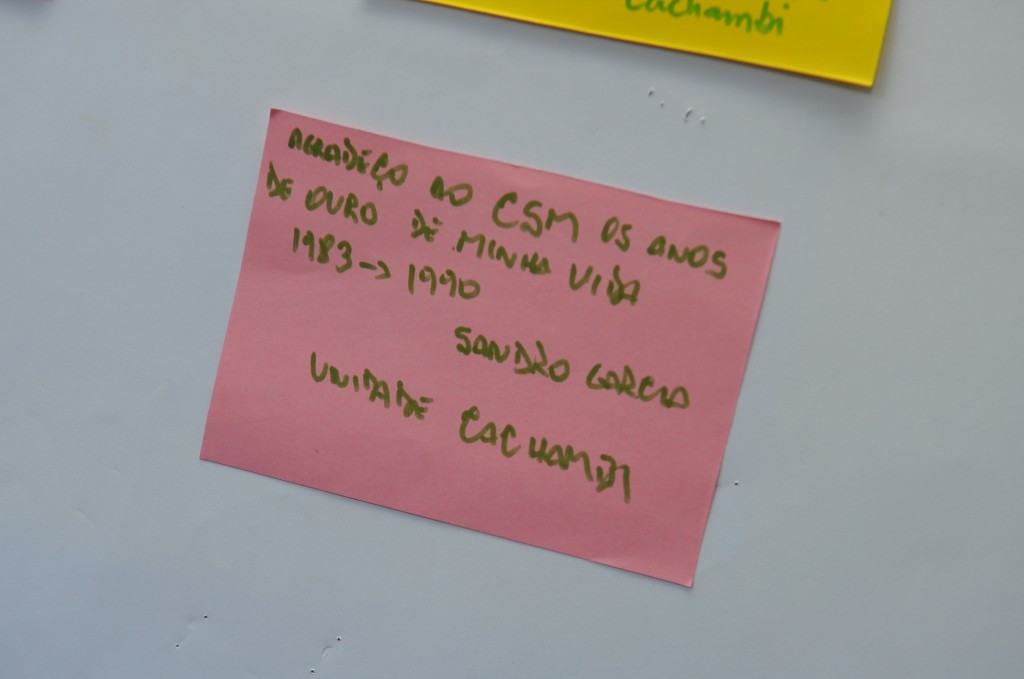 Cachambi
AGRADEÇO AO CSM OS ANOS
DE OURO DE MINHA VIDA
1983 -> 1990
SANDRO GARCIA
UNIDADE CACHAMBI